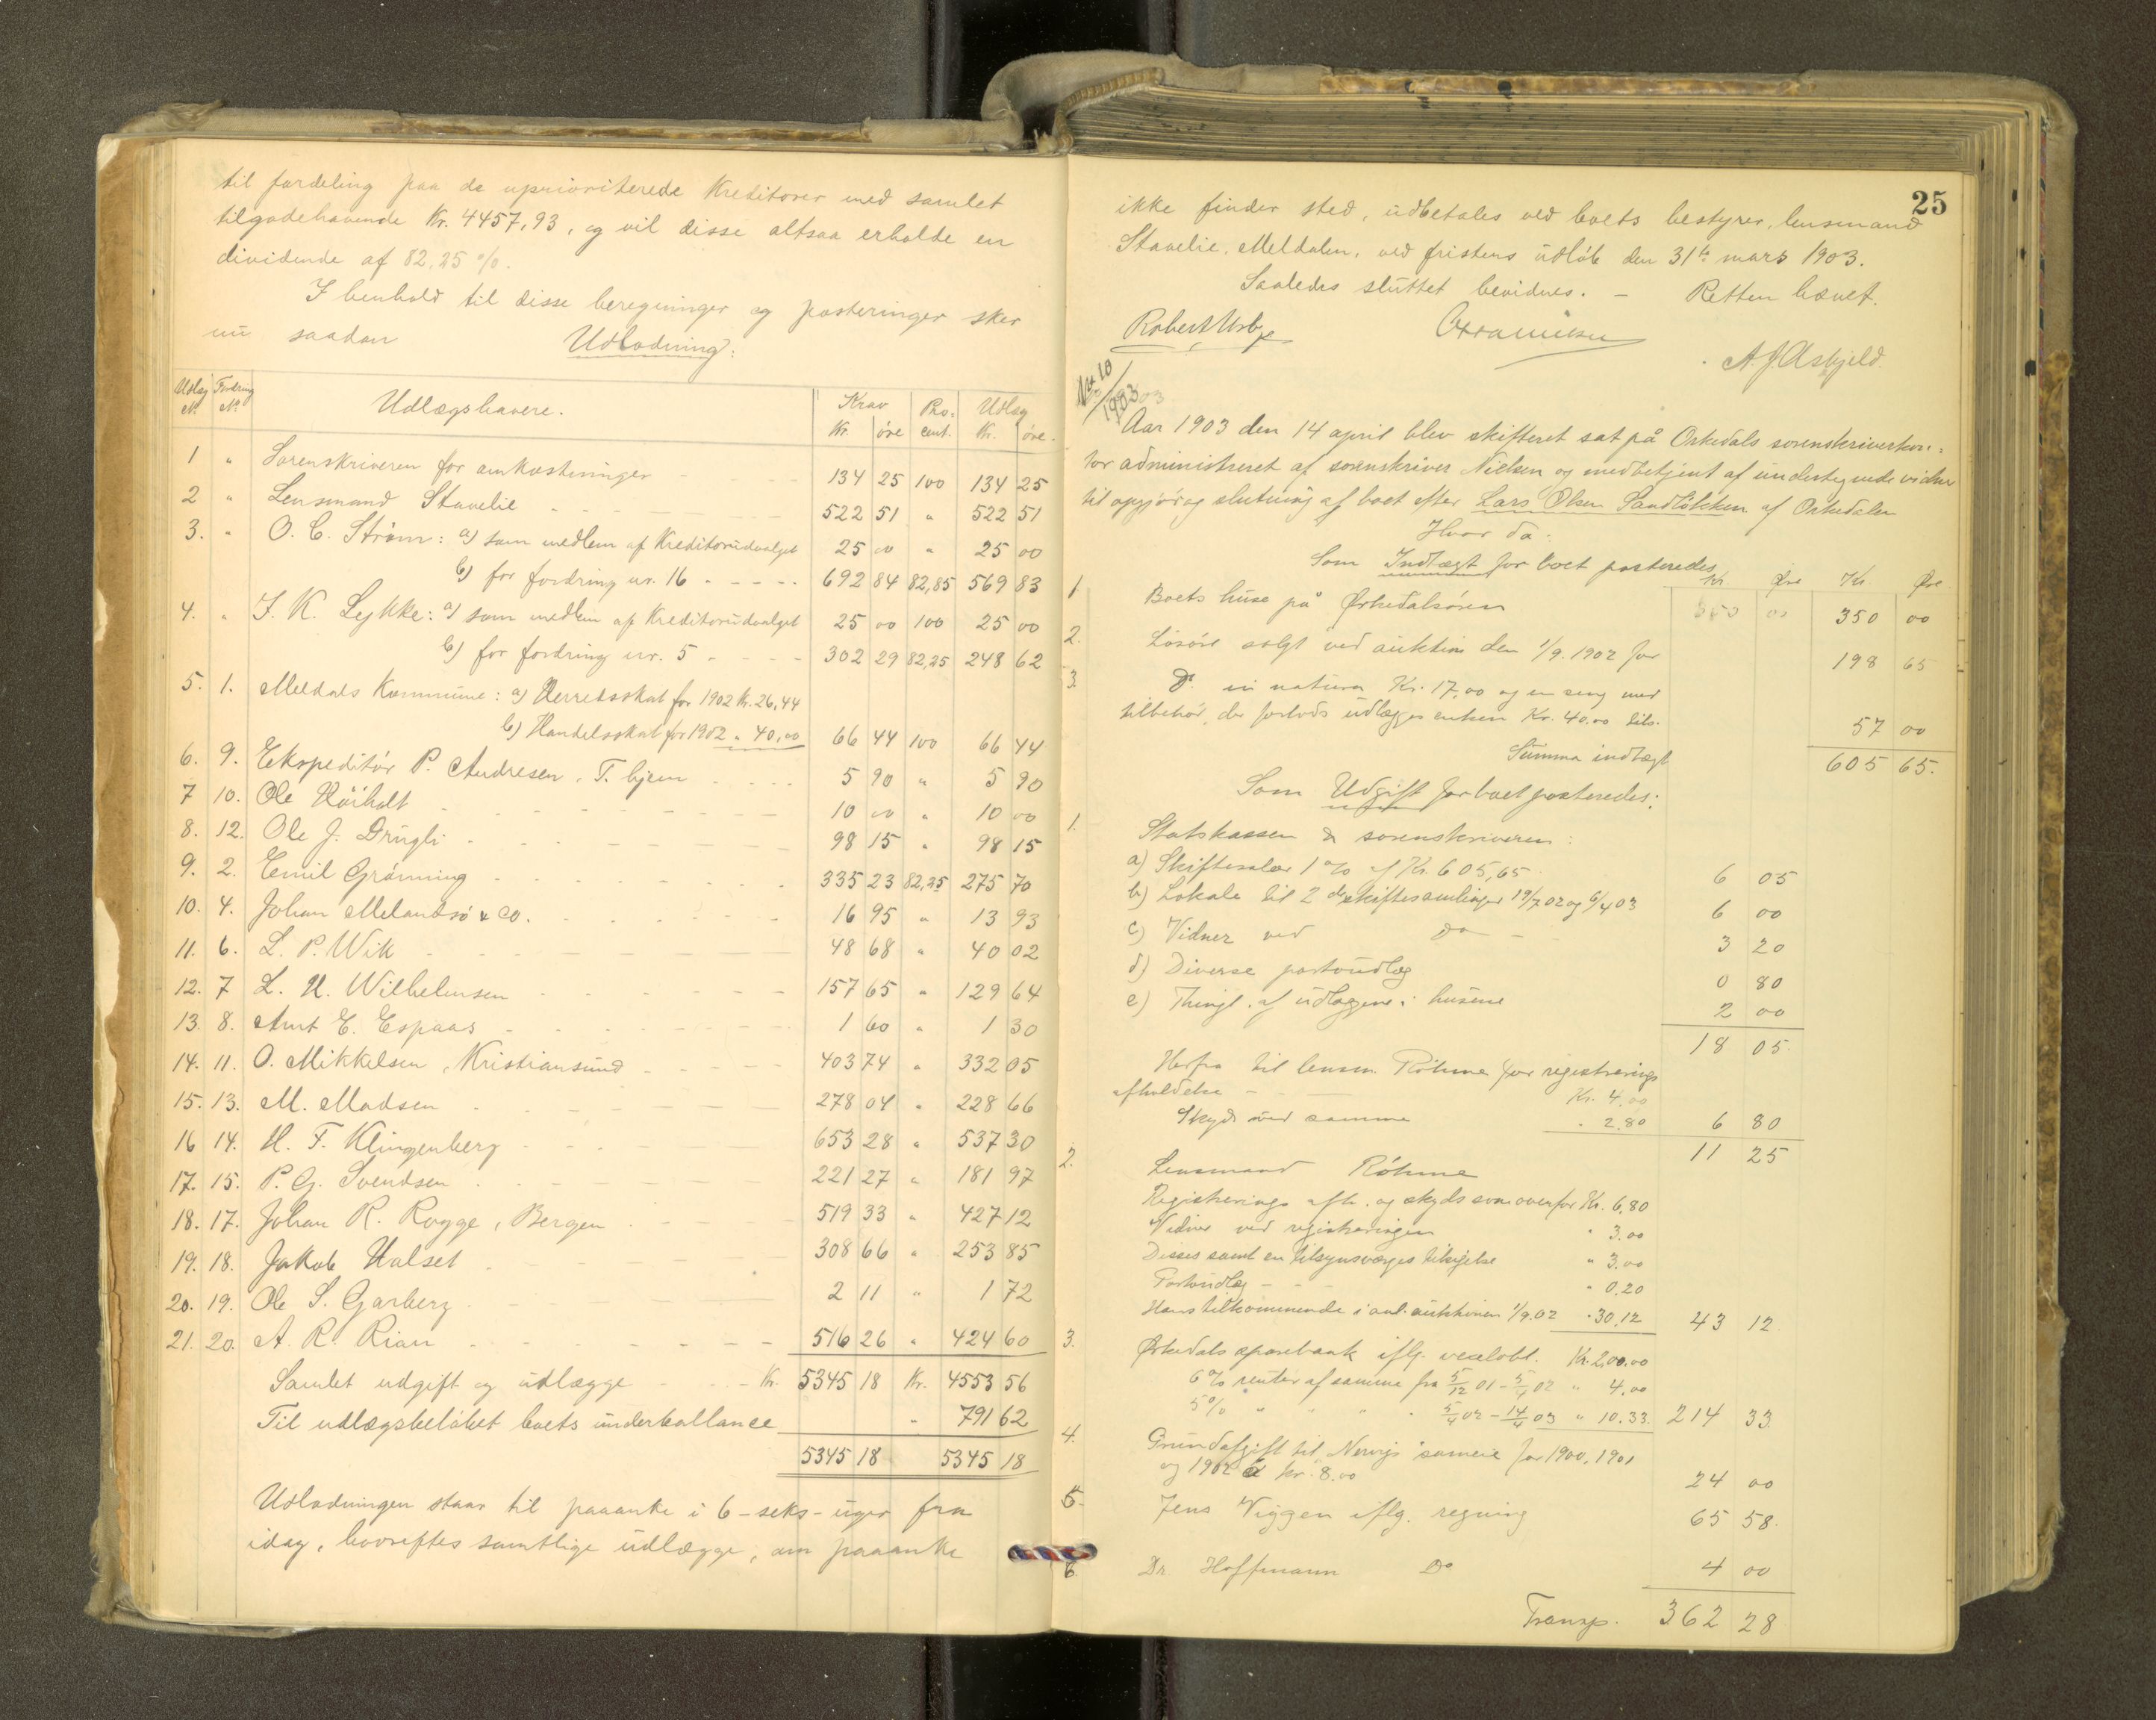 til fordeling paa de uprioriterede Kreditorer med samlet
tilgodehavende Kr. 4457,93, og vil disse altsaa erholde en
dividende af 82,25 %.
I henhold til disse beregninger og posteringer sker
nu saadan Udlodning:
Udlæg No. Fordring No. Udlægshavere. Krav Kr. øre Pro-cent. Udlæg Kr. øre.
1 " Sorenskriveren for omkostninger 134 25 100 134 25
2 " Lensmand Stavelie 522 51 " 522 51
3. " O. C. Strøm: a) som medlem af Kreditorudvalget 25 00 " 25 00
b) for fordring nr. 16 692 84 82,25 569 83
4. " J. K. Lykke: a) som medlem af Kreditorudvalget 25 00 100 25 00
b) for fordring nr. 5 302 29 82,25 248 62
5. 1. Meldals Kommune: a) Herredsskat for 1902 Kr. 26,44
b) Handelsskat for 1902 " 40,00 66 44 100 66 44
6. 9. Ekspeditør P. Andresen, T.hjem 5 90 " 5 90
7 10. Ole Höiholt 10 00 " 10 00
8. 12. Ole J. Drugli 98 15 " 98 15
9. 2. Emil Grønning 335 23 82,25 275 70
10. 4. Johan Melandsø & Co. 16 95 " 13 93
11. 6. L. P. Wik 48 68 " 40 02
12. 7 L. H. Wilhelmsen 157 65 " 129 64
13. 8. Arnt E. Espaas 1 60 " 1 30
14. 11. O. Mikkelsen, Kristiansund 403 74 " 332 05
15. 13. M. Madsen 278 04 " 228 66
16 14. H. F. Klingenberg 653 28 " 537 30
17. 15. P. G. Svendsen 221 27 " 181 97
18. 17. Johan R. Rogge, Bergen 519 33 " 427 12
19. 18. Jakob Halset 308 66 " 253 85
20. 19. Ole S. Garberg 2 11 " 1 72
21. 20. A. R. Rian 516 26 " 424 60
Samlet udgift og udlægge Kr. 5345 18 Kr. 4553 56
Til udlægsbeløbet boets underballance " 791 62
5345 18 5345 18
Udlodningen staar til paaanke i 6 - seks - uger fra
idag, hvorefter samtlige udlægge, om paaanke
25
ikke finder sted, udbetales ved boets bestyrer, lensmand
Stavelie, Meldalen, ved fristens udløb den 31te mars 1903.
Saaledes sluttet bevidnes. - Retten hævet.
A. J. Asbjeld.
No 10/1903
Aar 1903 den 14 april blev skifteret sat på Orkedals sorenskriverkon-
tor administreret af sorenskriver Nielsen og medbetjent af undertegnede vidner
til opgjör og slutning af boet efter Lars Olsen Sandløkken af Orkedalen
Hvor da:
Som Indtægt for boet posteredes
Kr Øre Kr. Øre
1 Boets huse på Ørkedalsøren 350 00 350 00
2. Løsøre solgt ved auktion den 1/9. 1902 for 198 65
3. Do in natura Kr. 17,00 og en seng med
tilbehör, der forlods udlægges enken Kr. 40.00 tils. 57 00
Summa indtægt 605 65.
Som Udgift for boet posteredes:
1. Statskassen & sorenskriveren:
a) Skiftesalær 1 % af Kr. 605,65 6 05
b) Lokale til 2 de skiftesamlinger 19/7 02 og 6/4 03 6 00
c) Vidner ved Do 3 20
d) Diverse portoudlæg 0 80
e) Thingl. af udlæggene i husene 2 00
18 05.
Herfra til lensm. Röhme for registrerings
afholdelse Kr. 4.00
Skyds ved samme " 2.80 6 80
11 25
2. Lensmand Röhme
Registrerings afh. og skyds som ovenfor Kr. 6.80
Vidner ved registreringen " 3.00
Disses samt en tilsynsværges tilsigelse " 3.00
Portoudlæg " 0.20
Hans tilkommende i anl. auktionen 1/9.02 " 30.12 43 12
3. Ørkedals sparebank iflg. vexelobl. Kr. 200.00
6 % renter af samme fra 5/12 01 - 5/4 02 " 4.00
5 % " " " " 5/4 02 - 14/4 03 " 10.33. 214 33
4. Grundafgift til sameie for 1900, 1901
og 1902 à kr. 8.00 24 00
5. Jens Viggen iflg. regning 65 58.
6 Dr. Hoffmann Do 4 00
Transp. 362 28